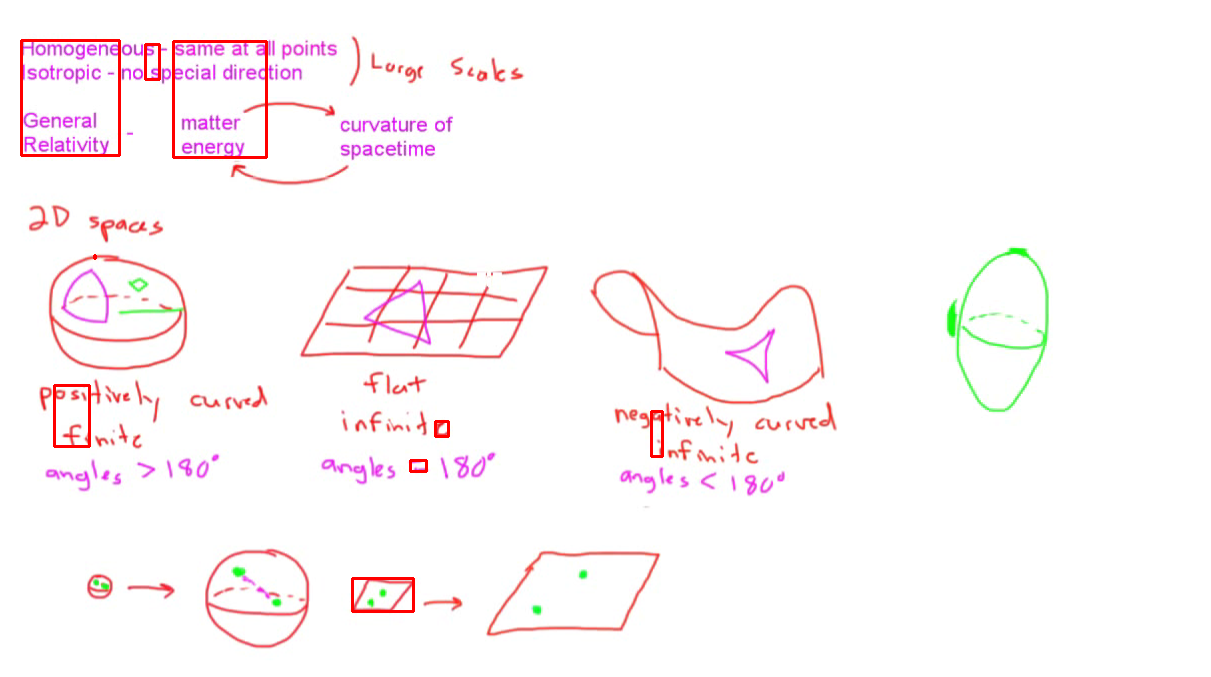 Homogeneous - same at all points
Isotropic - no special direction
) Large Scales
General Relativity - matter energy
curvature of spacetime
2D spaces
positively curved
finite
angles > 180°
flat
infinite
angles = 180°
negatively curved
infinite
angles < 180°